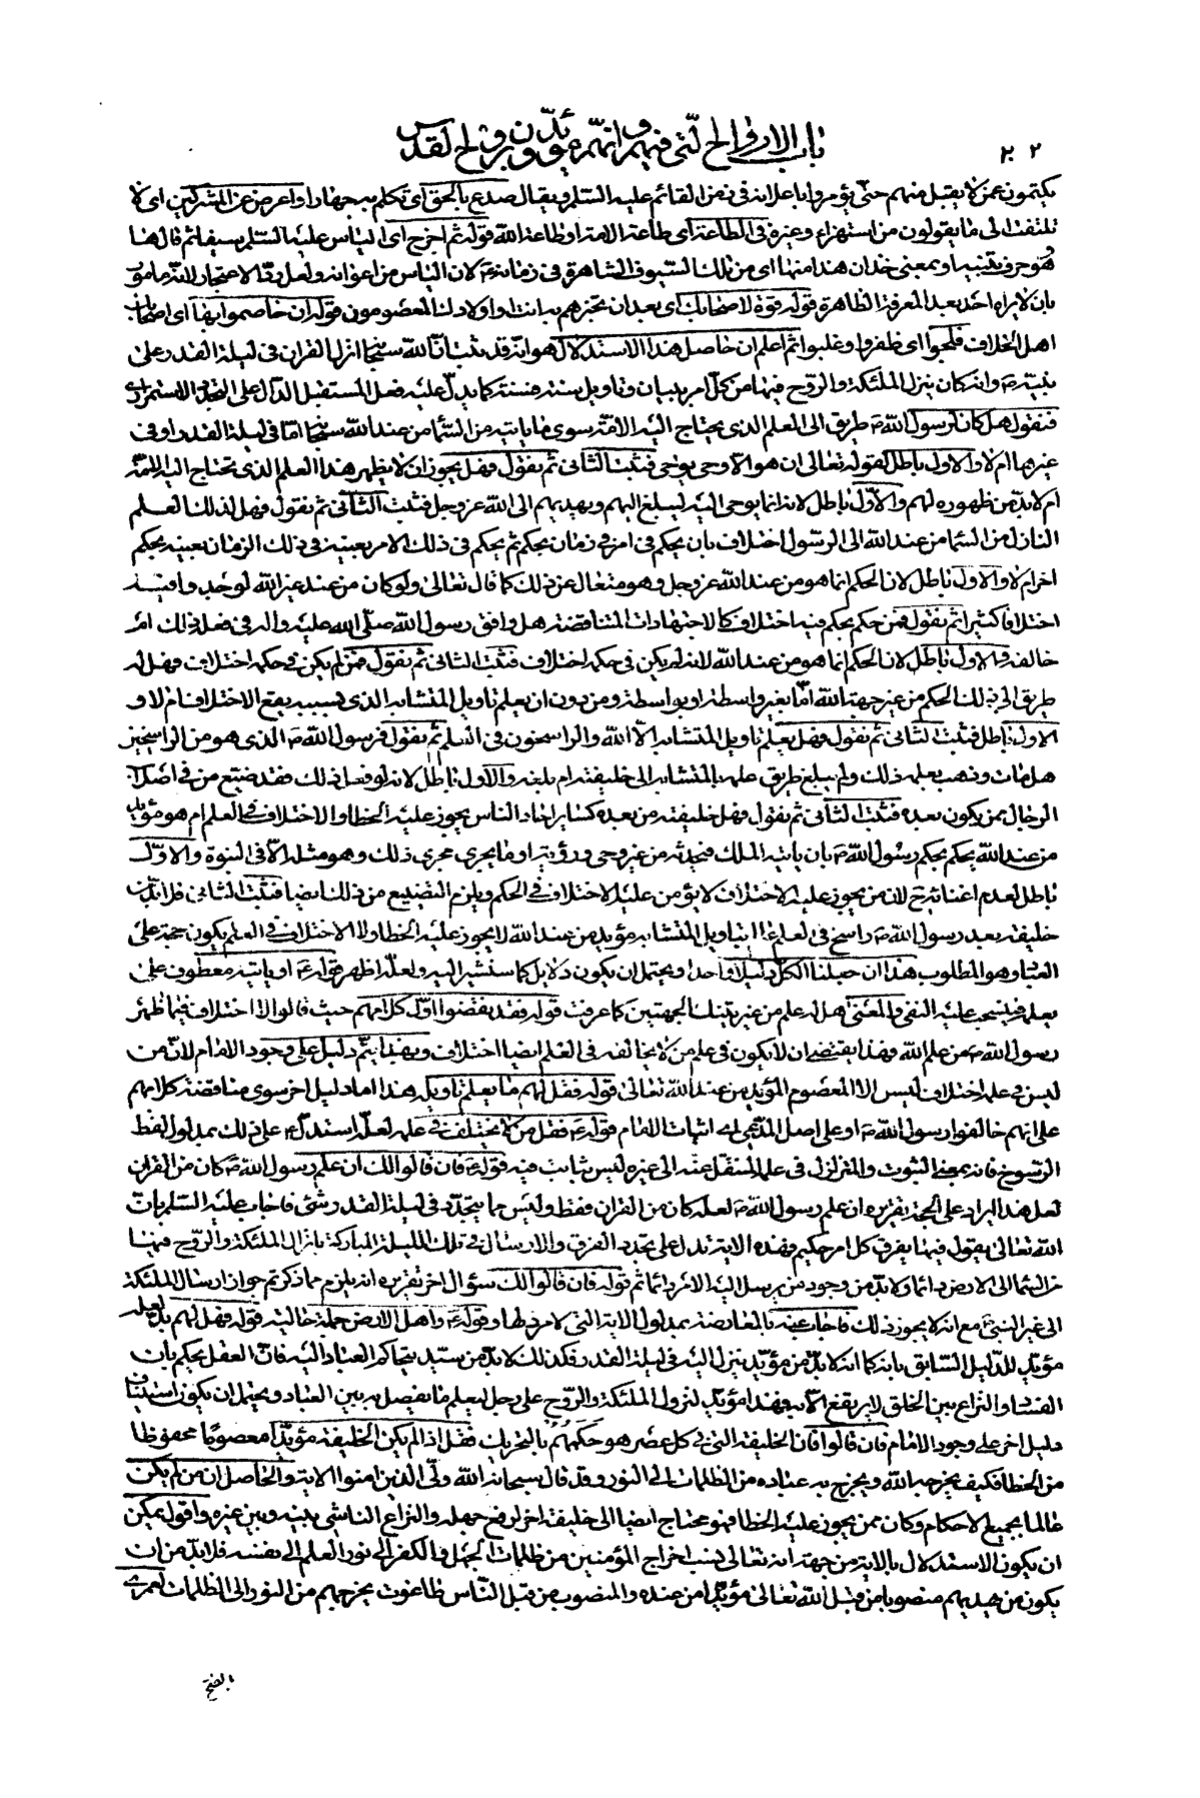 ٢٠٢ باب الارواح التى فيهم وانهم مؤيدون بروح القدس
يكتمون عمن لا يقبل منهم حتى يؤمروا باعلانه فى زمن القائم عليه السلم ويقال صدع بالحق اى تكلم به جهارا واعرض عن المشركين اى لا
تلتفت الى ما يقولون من استهزاء وغيره فى الطاعة اى طاعة الامة او طاعة الله قوله ثم اخرج اى الياس عليه السلم سيفا ثم قال ها
هو حرف تنبيه او بمعنى خذ ان هذا منها اى من تلك السيوف الشاهرة فى زمانه ع لان الياس من اعوانه ولعل رد الاعتجار لانه مامور
بان لا يراه احد بعد المعرفة الظاهرة قوله قوة لاصحابك اى بعد ان تخبرهم به انت او اولادك المعصومون قوله ان خاصموا بها اى اصحابك
اهل الخلاف فلجوا اى ظفروا وغلبوا ثم اعلم ان حاصل هذا الاستدلال هو انه قد ثبت ان الله سبحانه انزل القران فى ليلة القدر على
نبيه ص وانه كان ينزل الملئكة والروح فيها من كل امر ببيان وتاويل سنة فسنة كما يدل عليه فعل المستقبل الدال على التجدد الاستمرارى
فنقول هل كان لرسول الله ص طريق الى العلم الذى يحتاج اليه الامة سوى ما ياتيه من السماء من عند الله سبحانه اما فى ليلة القدر او فى
غيرها ام لا والاول باطل لقوله تعالى ان هو الا وحى يوحى فثبت الثانى ثم نقول فهل يجوز ان لا يظهر هذا العلم الذى يحتاج اليه الامة
ام لا بد من ظهوره لهم والاول باطل لانه انما يوحى اليه ليبلغ اليهم ويهديهم الى الله عز وجل فثبت الثانى ثم نقول فهل لذلك العلم
النازل من السماء من عند الله الى الرسول اختلاف بان يحكم فى امر فى زمان بحكم ثم يحكم فى ذلك الامر بعينه فى ذلك الزمان بعينه بحكم
اخر ام لا والاول باطل لان الحكم انما هو من عند الله عز وجل وهو متعال عن ذلك كما قال تعالى ولو كان من عند غير الله لوجدوا فيه
اختلافا كثيرا ثم نقول فمن حكم بحكم فيه اختلاف كالاجتهادات المتناقضة هل وافق رسول الله صلى الله عليه واله فى فعله ذلك ام
خالفه والاول باطل لان الحكم انما هو من عند الله لانه لم يكن فى حكمه اختلاف فثبت الثانى ثم نقول فمن لم يكن فى حكمه اختلاف فهل له
طريق الى ذلك الحكم من غير جهة الله اما بغير واسطة او بواسطة ومن دون ان يعلم تاويل المتشابه الذى بسببه يقع الاختلاف ام لا و
الاول باطل فثبت الثانى ثم نقول فهل يعلم تاويل المتشابه الا الله والراسخون فى العلم ثم نقول فرسول الله ص الذى هو من الراسخين
هل مات وذهب بعلمه ذلك ولم يبلغ طريق علمه بالمتشابه الى خليفته ام بلغه والاول باطل لانه لو فعل ذلك فقد ضيع من فى اصلاب
الرجال ممن يكون بعده فثبت الثانى ثم نقول فهل خليفته من بعده كسائر احاد الناس يجوز عليه الخطا والاختلاف فى العلم ام هو مؤيد
من عند الله يحكم بحكم رسول الله ص بان ياتيه الملك فيحدثه من غير وحى ورؤية او ما يجرى مجرى ذلك وهو مثله الا فى النبوة والاول
باطل لعدم اغنائه ح لان من يجوز عليه الاختلاف لا يؤمن عليه الاختلاف فى الحكم ويلزم التضييع من ذلك ايضا فثبت الثانى فلا بد من
خليفة بعد رسول الله ص راسخ فى العلم عالم بتاويل المتشابه مؤيد من عند الله لا يجوز عليه الخطا ولا الاختلاف فى العلم يكون حجة على
العباد وهو المطلوب هذا ان جعلنا الكل دليلا واحدا ويحتمل ان يكون دلايل كما سنشير اليه ولعله اظهر قوله ع او ياتيه معطوف على
يعلم فينسحب عليه النفى والمعنى هل له علم من غير تينك الجهتين كما عرفت قوله فقد نقضوا اول كلامهم حيث قالوا لا اختلاف فيما ظهر
رسول الله ص من علم الله فهذا يقتضى ان لا يكون فى علم من لا يخالفه فى العلم ايضا اختلاف وبهذا يتم دليل على وجود الامام لان من
ليس فى علمه اختلاف ليس الا المعصوم المؤيد من عند الله تعالى قوله فقل لهم ما يعلم تاويله هذا اما دليل اخر سوى مناقضة كلامهم
على انهم خالفوا رسول الله ص او على اصل المدعى اى اثبات الامام قوله ع فقل من لا يختلف فى علمه لعله استدل ع على ذلك بمدلول لفظ
الرسوخ فانه بمعنى الثبوت والمتزلزل فى علمه المنتقل عنه الى غيره ليس بثابت فيه قوله ع فان قالوا لك ان علم رسول الله ص كان من القران
لعل هذا ايراد على الحجة تقريره ان علم رسول الله ص لعله كان من القران فقط وليس مما يتجدد فى ليلة القدر شئ فاجاب عليه السلم بان
الله تعالى يقول فيها يفرق كل امر حكيم فهذه الاية تدل على تجدد الفرق والارسال فى تلك الليلة المباركة بانزال الملئكة والروح فيها
من السماء الى الارض دائما ولا بد من وجود من يرسل اليه الامر دائما ثم قوله فان قالوا لك سؤال اخر تقريره انه يلزم مما ذكرتم جواز ارسال الملئكة
الى غير النبى ص مع انه لا يجوز ذلك فاجاب عنه بالمعارضة بمدلول الاية التى لا مرد لها وقوله ع واهل الارض جملة حالية قوله فهل لهم بد لعله
مؤيد للدليل السابق بانه كما انه لا بد من مؤيد ينزل اليه فى ليلة القدر فكذلك لا بد من سيد يتحاكم العباد اليه فان العقل يحكم بان
الفساد والنزاع بين الخلق لا يرتفع الا به فهذا مؤيد لنزول الملئكة والروح على رجل ليعلم ما يفصل به بين العباد ويحتمل ان يكون استيناف
دليل اخر على وجود الامام فان قالوا فان الخليفة التى فى كل عصر هو حكمهم بالتحريك فقل اذا لم يكن الخليفة مؤيدا معصوما محفوظا
من الخطا فكيف يخرجه الله ويخرج به عباده من الظلمات الى النور وقد قال سبحانه الله ولى الذين امنوا الاية والحاصل ان من لم يكن
عالما بجميع الاحكام وكان ممن يجوز عليه الخطا فهو محتاج ايضا الى خليفة اخر لرفع جهله والنزاع الناشى بينه وبين غيره واقول يمكن
ان يكون الاستدلال بالاية من جهة انه تعالى نسب اخراج المؤمنين من ظلمات الجهل والكفر الى نور العلم الى نفسه فلا بد من ان
يكون من يهديهم منصوبا من قبل الله تعالى مؤيدا من عنده والمنصوب من قبل الناس طاغوت يخرجهم من النور الى الظلمات لعمرى